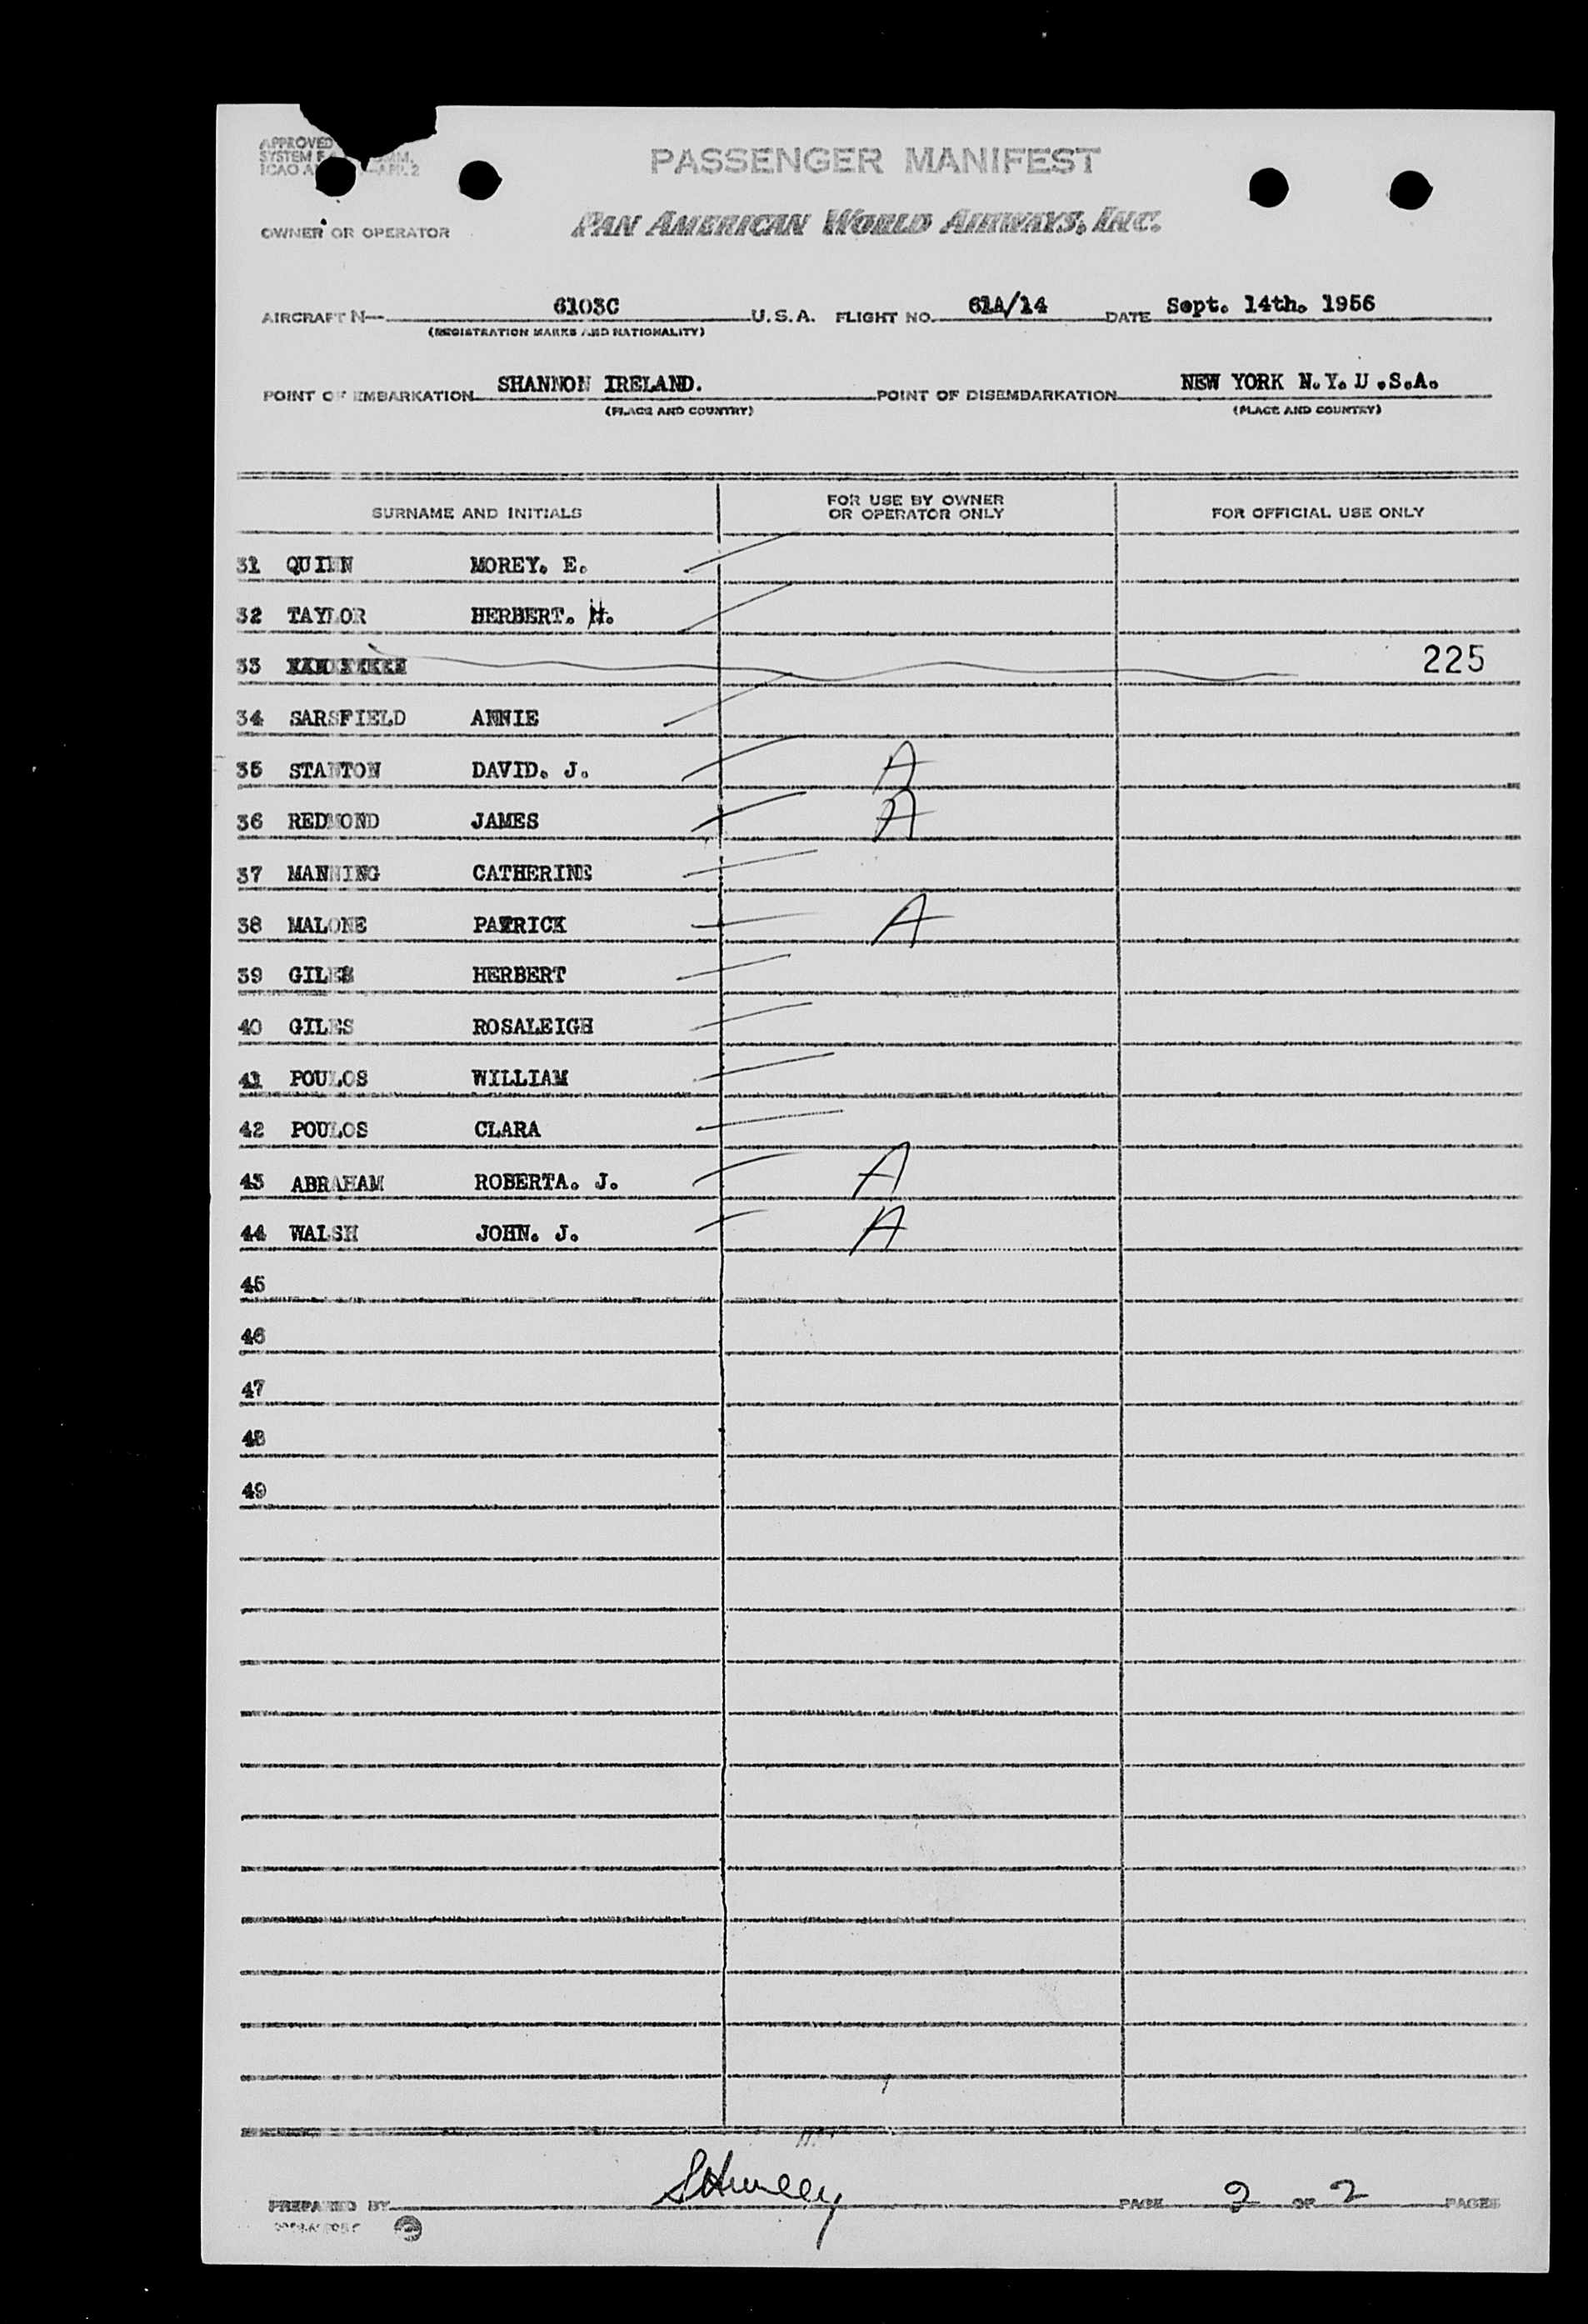 APPROVED
SYSTEM
ICAO
PASSENGER MANIFEST
OWNER OR OPERATOR
PAN AMERICAN WORLD AIRWAYS, INC.
AIRCRAFT N— 6103C U.S.A. FLIGHT NO. 61A/14 DATE Sept. 14th. 1956
(REGISTRATION MARKS AND NATIONALITY)
POINT OF EMBARKATION SHANNON IRELAND. POINT OF DISEMBARKATION NEW YORK N.Y. U.S.A.
(PLACE AND COUNTRY) (PLACE AND COUNTRY)
SURNAME AND INITIALS FOR USE BY OWNER OR OPERATOR ONLY FOR OFFICIAL USE ONLY
31 QUINN MOREY. E.
32 TAYLOR HERBERT. H.
33 225
34 SARSFIELD ANNIE
35 STANTON DAVID. J. A
36 REDMOND JAMES A
37 MANNING CATHERINE
38 MALONE PATRICK A
39 GILES HERBERT
40 GILES ROSALEIGH
41 POULOS WILLIAM
42 POULOS CLARA
43 ABRAHAM ROBERTA. J. A
44 WALSH JOHN. J. A
45
46
47
48
49
PREPARED BY PAGE 2 OF 2 PAGES